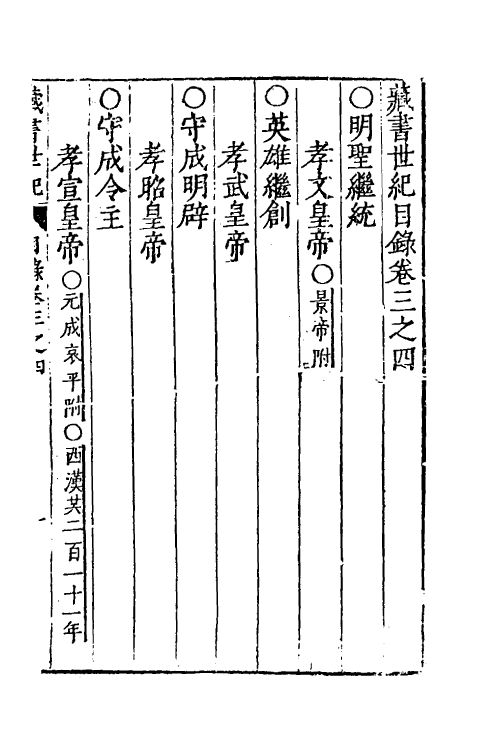 藏書世紀目錄卷三之四
○明聖繼統
孝文皇帝○景帝附
○英雄繼創
孝武皇帝
○守成明辟
孝昭皇帝
○守成令主
孝宣皇帝○元成哀平附○西漢共二百一十一年
藏書世紀 目錄卷三之四